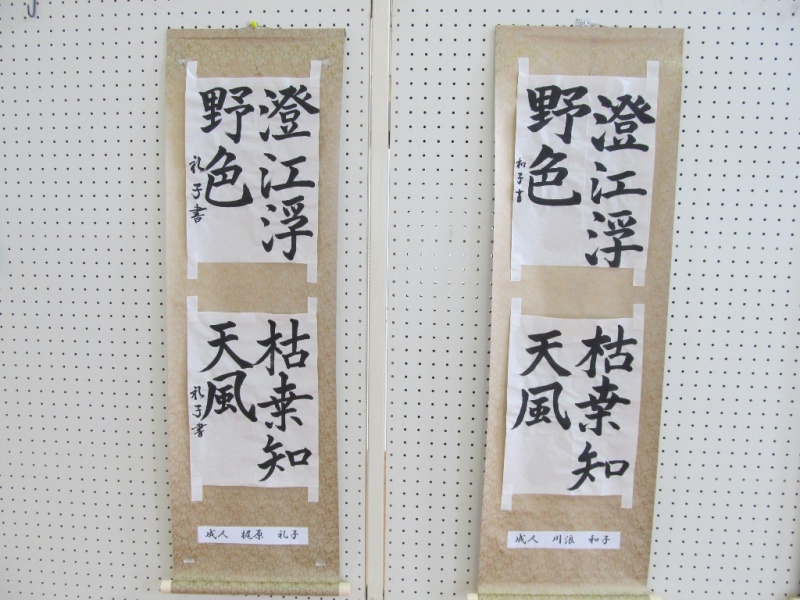 澄江浮
野色
礼子書
枯桒知
天風
礼子書
成人 梶原 礼子
澄江浮
野色
和子書
枯桒知
天風
成人 川浪 和子